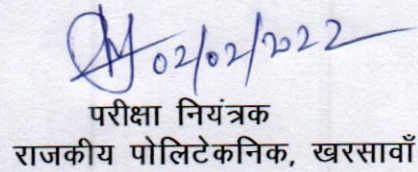 02/02/2022
परीक्षा नियंत्रक
राजकीय पोलिटेकनिक, खरसावाँ